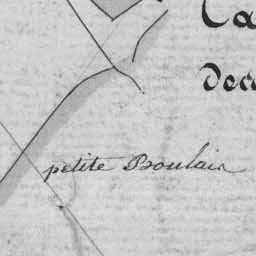 Ca
des
petite Boulain